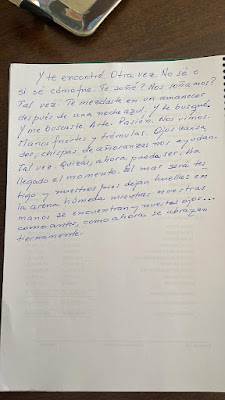 Y te encontré. Otra vez. No sé o
si sé cómo fue. Te soñé? Nos soñamos?
Tal vez. Te mezclaste en un amanecer
después de una noche azul. Y te busqué.
Y me buscaste. Arte. Pasión. Nos vimos.
Manos fuertes y trémulas. Ojos
chispas de añoranzas nos ayudan.
Tal vez. Quizás, ahora pueda ser. Ha
llegado el momento. El mar será tes
tigo y nuestros pies dejan huellas en
la arena húmeda mientras nuestras
manos se encuentran y nuestros ojos...
como antes, como ahora se abrazan
tiernamente.